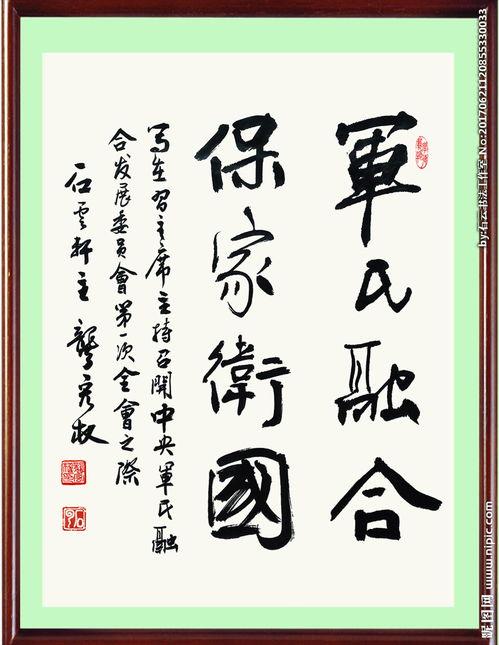 軍民融合
保家衛國
写在習主席主持召開中央軍民融
合发展委員會第一次全會之際
石雲軒主 龔克敏
by:石云书法工作室 No:20170621120855330033
昵图网 www.nipic.com